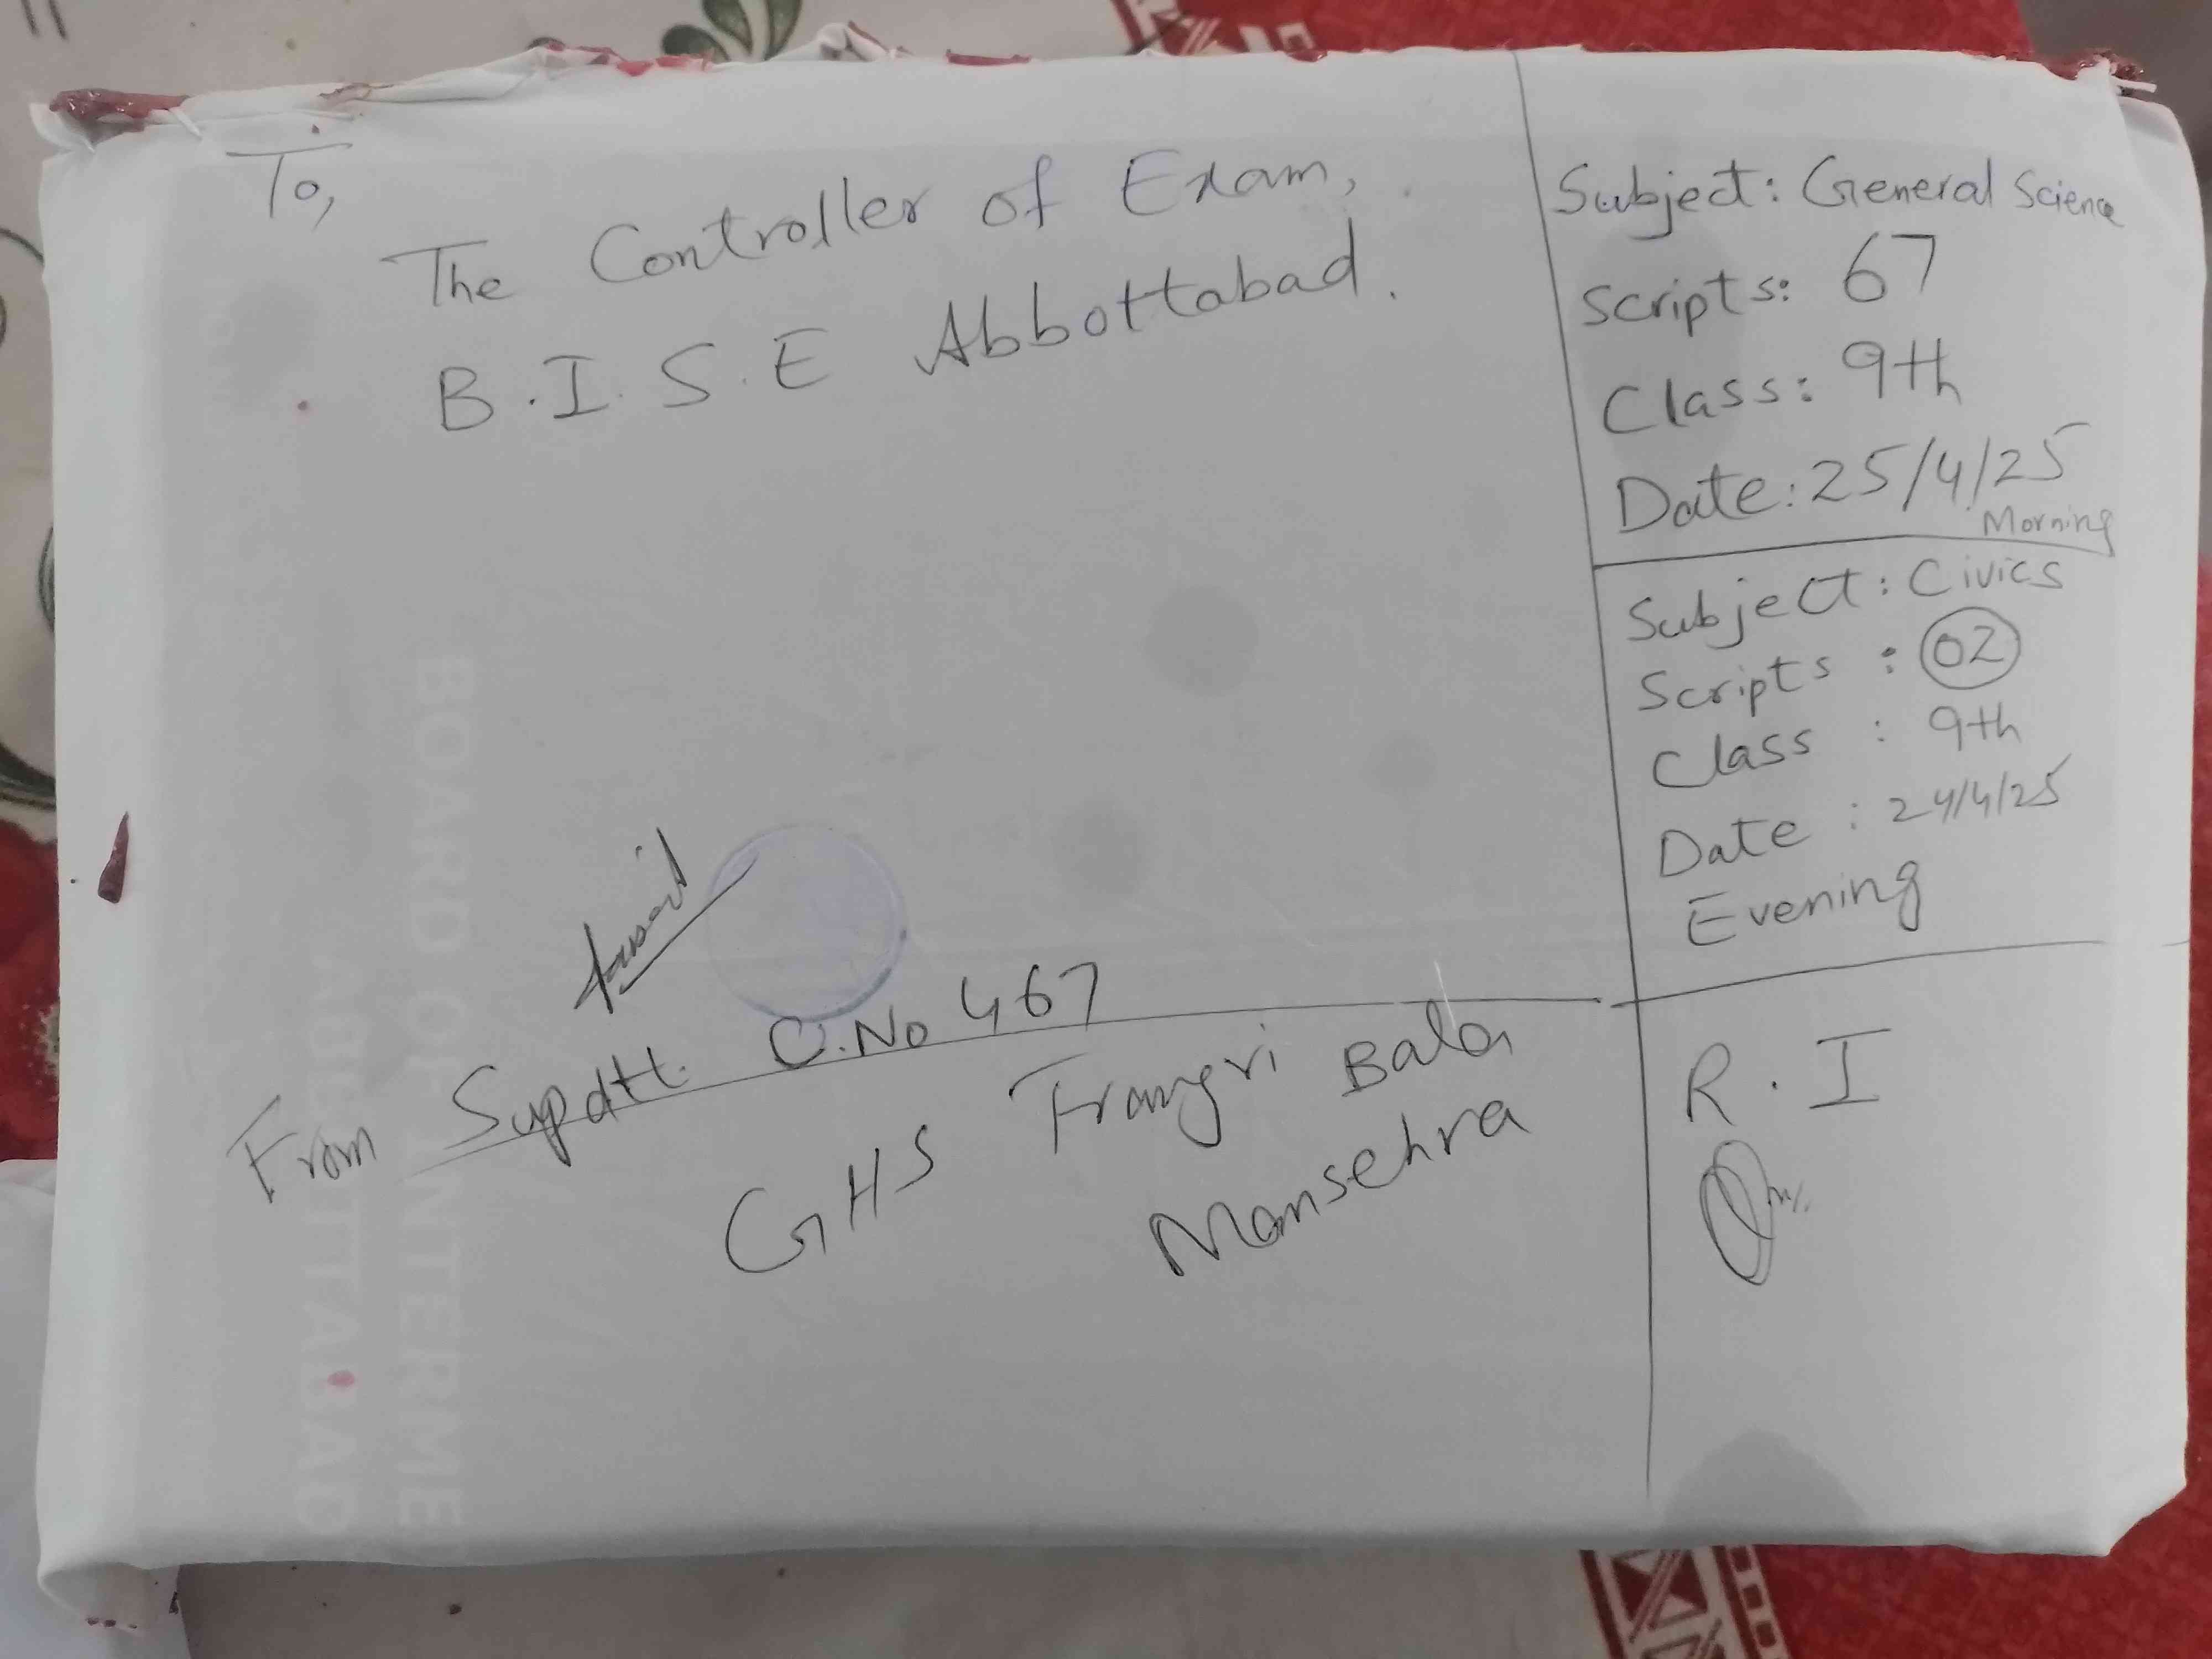 To,
The Controller of Exam,
B.I.S.E Abbottabad.
Subject: General Science
Scripts: 67
Class: 9th
Date: 25/4/25
Morning
Subject: Civics
Scripts : 02
Class : 9th
Date : 24/4/25
Evening
From Supdtt. C.No 467
GHS Trangri Bala
Mansehra
R.I
BOARD OF INTERME
ABBOTTABAD